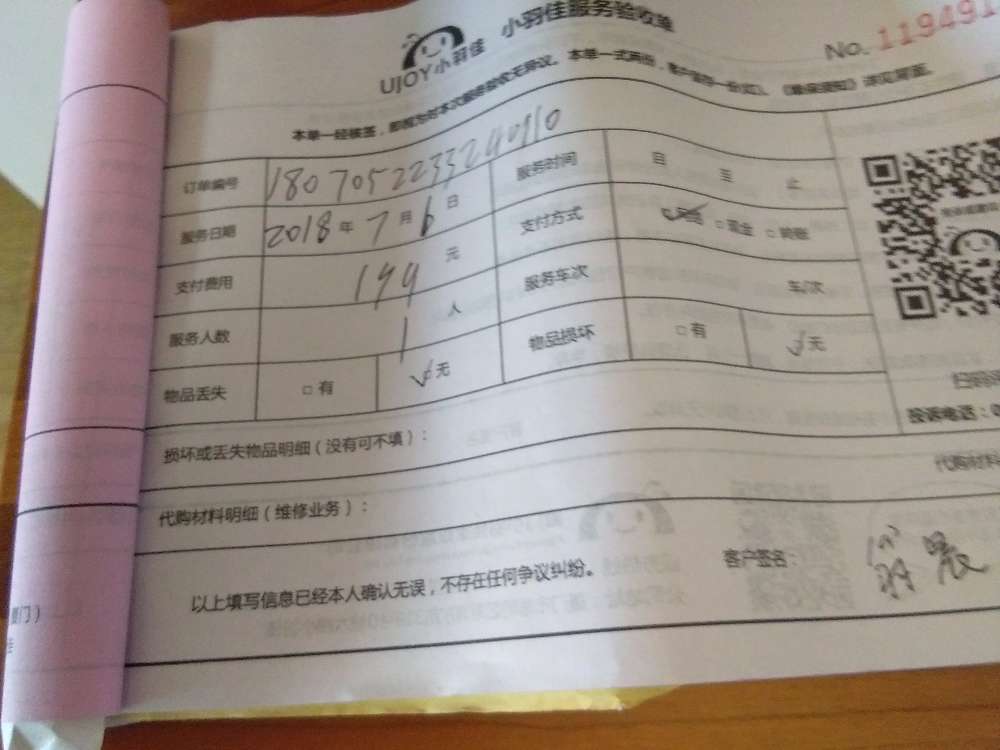 UJOY小羽佳 小羽佳服务验收单
No. 119491
本单一经核签，即视为对本次服务验收无异议。本单一式两份，客户留存一份(红)。《客户须知》详见背面。
订单编号 180705223324010 服务时间 自 至 止
服务日期 2018年7月6日 支付方式 网络 □现金 □转账
支付费用 199 元 服务车次 车/次
服务人数 1 人 物品损坏 □有 ✓无
物品丢失 □有 ✓无
扫码
投诉电话：0
损坏或丢失物品明细（没有可不填）：
代购材料
代购材料明细（维修业务）：
以上填写信息已经本人确认无误，不存在任何争议纠纷。
客户签名： 翁晨
门）